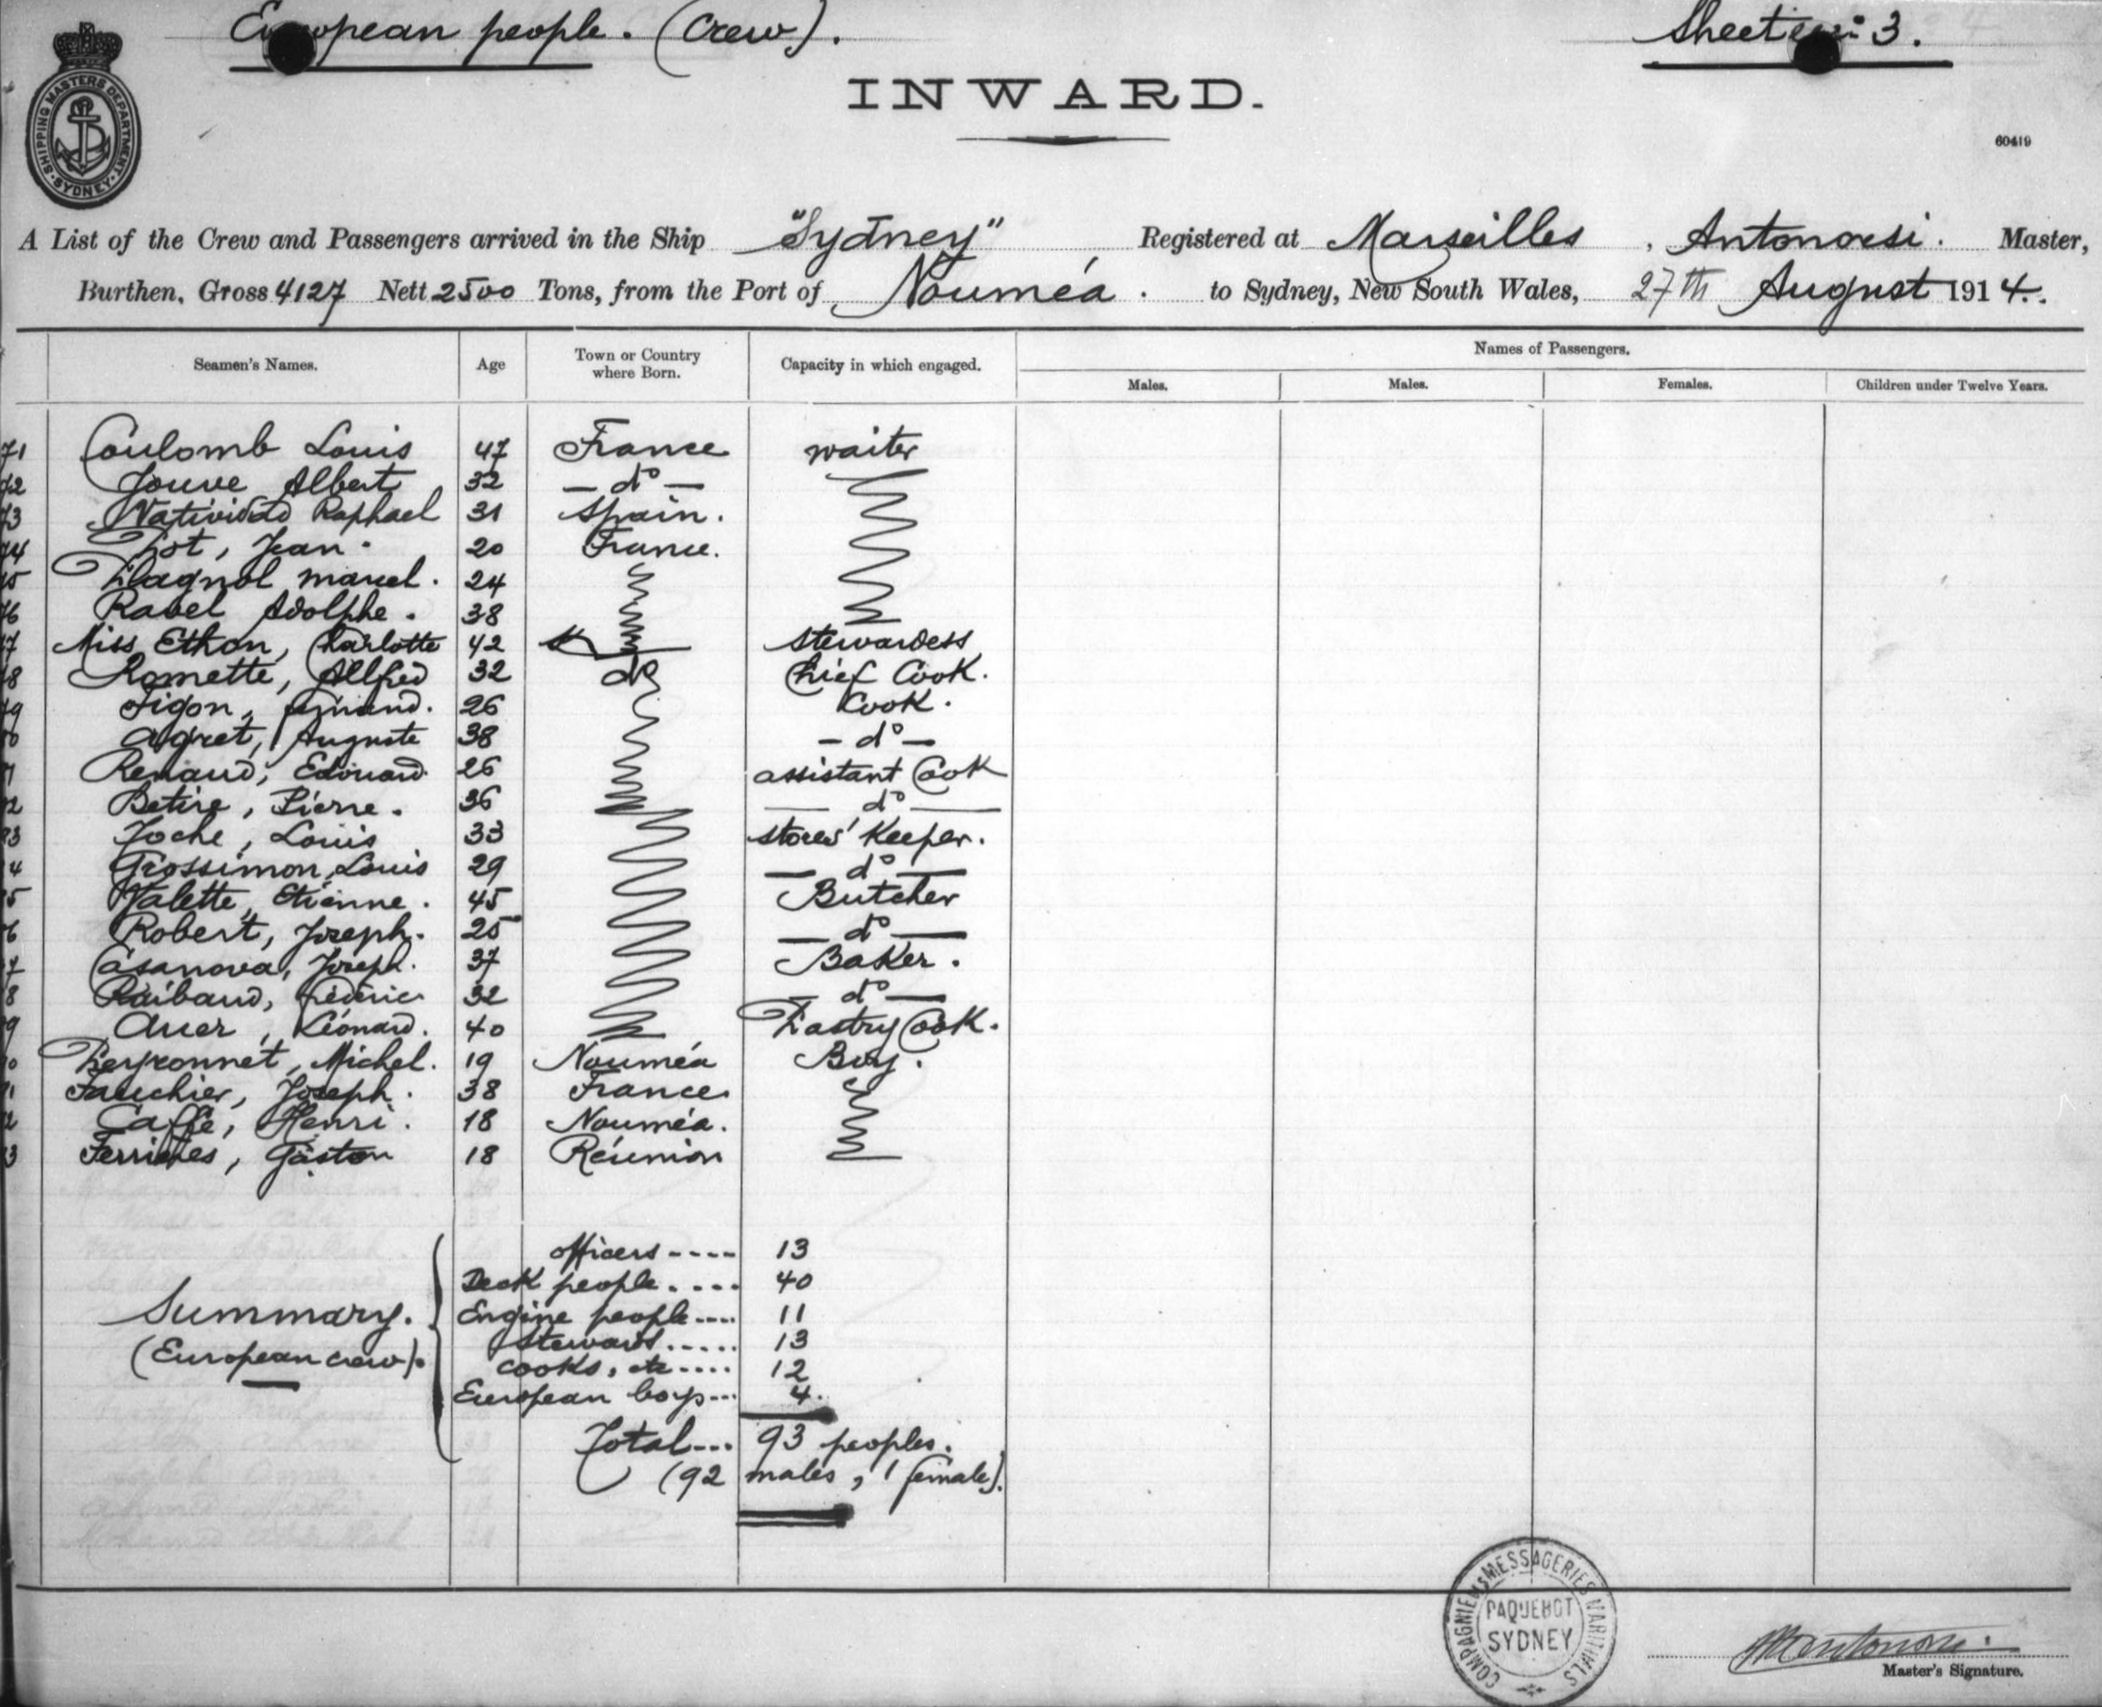 European people. (Crew).
Sheet n: 3.
SHIPPING MASTERS DEPARTMENT
SYDNEY
INWARD.
60419
A List of the Crew and Passengers arrived in the Ship "Sydney" Registered at Marseilles, Antonorsi. Master,
Burthen, Gross 4127 Nett 2500 Tons, from the Port of Nouméa. to Sydney, New South Wales, 27th August 1914.
Seamen's Names. Age Town or Country where Born. Capacity in which engaged. Names of Passengers.
Males. Males. Females. Children under Twelve Years.
71 Coulomb Louis 47 France waiter
72 Jouve Albert 32 - d° -
73 Natividad Raphael 31 Spain.
74 Jean. 20 France.
75 Plagnol marcel. 24
76 Ravel Adolphe. 38
7 Miss Ethon, Charlotte 42 stewardess
8 Romette, Alfred 32 d° Chief Cook.
9 Figon, 26 Cook.
0 Agret, Auguste 38 - d° -
1 Renaud, Edouard. 26 assistant Cook
2 Betire, Pierre. 36 - d° -
83 Joche, Louis 33 stores' Keeper.
4 Grossimon, Louis 29 - d° -
5 Valette, Etienne. 45 Butcher
6 Robert, Joseph. 25 - d° -
7 Casanova, Joseph. 37 Baker.
8 Raibaud, Frédéric 32 - d° -
9 Auer, Léonard. 40 Pastry Cook.
0 Peyronnet, Michel. 19 Nouméa Boy.
1 Fauchier, Joseph. 38 France
2 Caffé, Henri. 18 Nouméa.
3 Ferrières, Gaston 18 Réunion
Summary.
(European crew).
officers ---- 13
Deck people. ... 40
Engine people ---- 11
stewards ..... 13
cooks, etc .... 12
European boys --- 4.
Total --- 93 peoples.
(92 males, 1 female).
COMPAGNIE DES MESSAGERIES MARITIMES
PAQUEBOT
SYDNEY
Master's Signature.